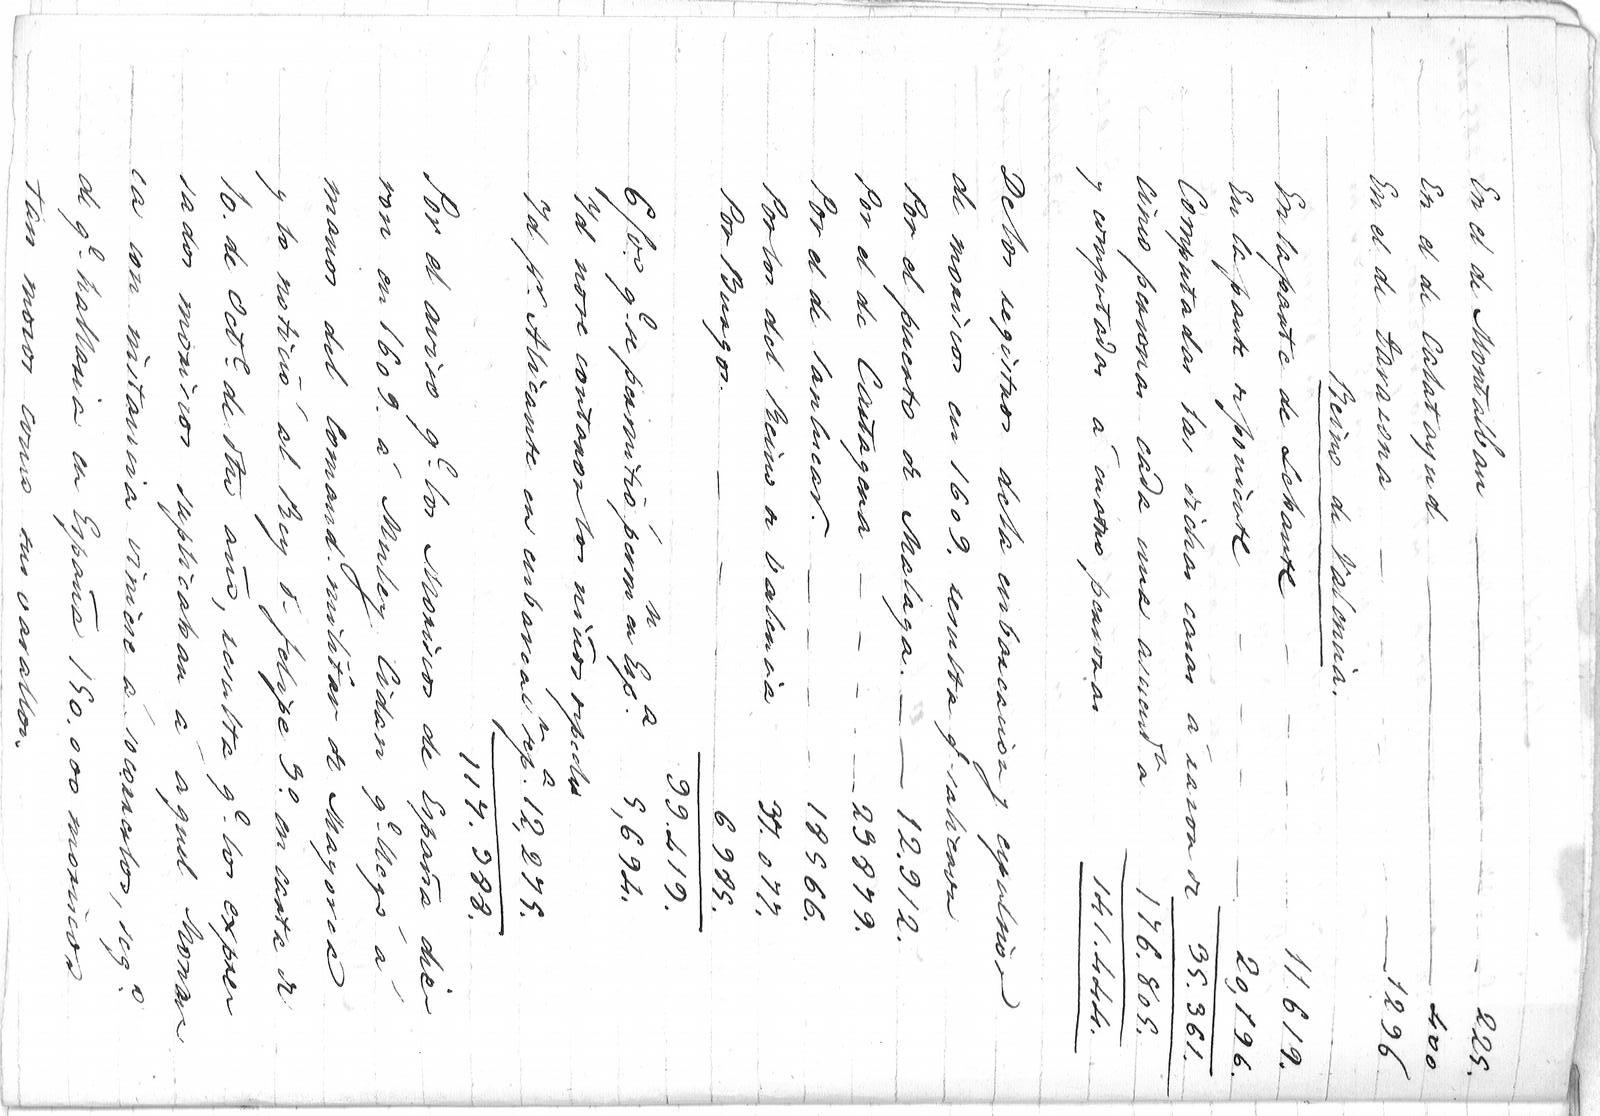 En el de Montalban 225.
En el de Calatayud 400
En el de Tarasona 1296
Reino de Valencia.
En la parte de Lebante 11.619.
En la parte de poniente 20,196.
Computadas las dichas casas á razon de 35.361.
Cinco personas cada una asciende a 176.805.
y computadas á cuatro personas 141.444.
De los registros de la embarcacion y expulsion
de moriscos en 1609. resulta q.e salieron
Por el puerto de Malaga. 12.912.
Por el de Cartagena 23879.
Por el de Sanlucar. 18566.
Por los del Reino de Valencia 37.077.
Por Burgos. 6985.
99.419.
q.e se permitió perm.n en Esp.a 5,694.
Yd nose contaron los niños
Yd p.r Alicante en embarcac.n 12,275.
117.388.
Por el aviso q.e los Moriscos de España die
ron en 1609. á Muley Cidan q.e llegó á
manos del Comand. militar de
y lo notició al Rey D. Felipe 3.o en carta de
10. de Oct.e de dho año, resulta q.e los expre
sados moriscos suplicaban á aquel Monar
ca con instancia viniese á socorrerlos, seg.n
di q.e hallaria en España 150.000 moriscos
tan moros como sus vasallos.